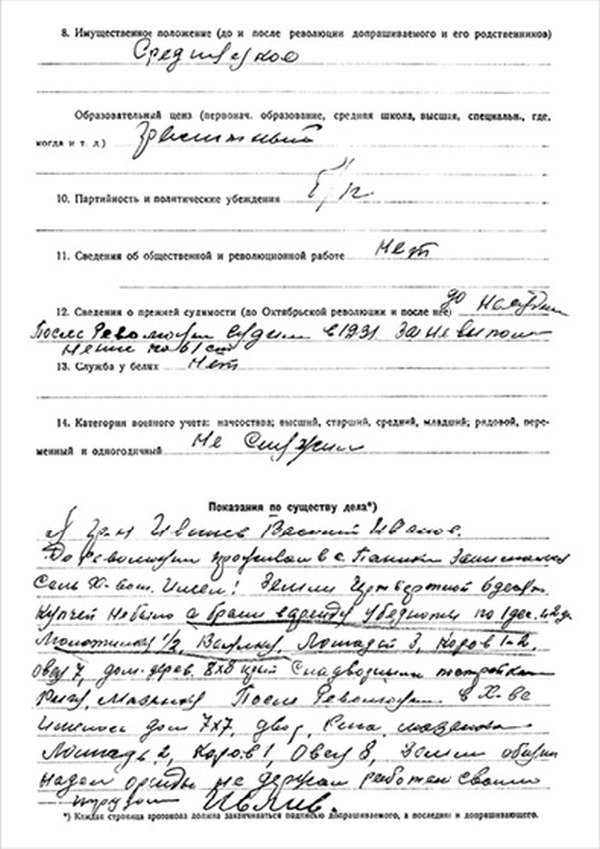 8. Имущественное положение (до и после революции допрашиваемого и его родственников)
Средняцкое
Образовательный ценз (первонач. образование, средняя школа, высшая, специальн., где,
когда и т. д.)
10. Партийность и политические убеждения Б/п
11. Сведения об общественной и революционной работе Нет
12. Сведения о прежней судимости (до Октябрьской революции и после нее) до
После Революции судим в 1931 за не выпол
нение
13. Служба у белых Нет
14. Категория военного учета: начсостава; высший, старший, средний, младший; рядовой, пере-
менный и одногодичный Не служил
Показания по существу дела*)
Я гр-н Василий Иванов.
До революции проживал в с. Паники Занимался
Сель х-вом. Имел: Земли
купчей не было а брали в аренду у бедноты по 1 дес. 1-2 дес.
Молотилку 1/2, Веялку, Лошадей 3, Коров 1-2,
Овец 7, дом дерев. 8х8 с надворными постройками
Ригу, Мазанку После Революции в х-ве
имелось дом 7х7, двор, Рига, мазанка
Лошадь 2, Коров 1, Овец 8, Земли
надел аренды не держал работал своим
трудом Ивлив.
*) Каждая страница протокола должна заканчиваться подписью допрашиваемого, а последняя и допрашивающего.